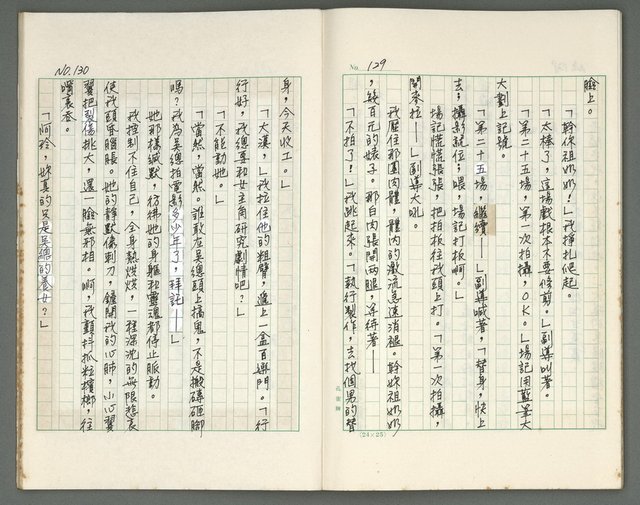 No. 129
臉上。
「幹你祖奶奶!」我掙扎爬起。
「太棒了，這場戲根本不要修剪。」副導叫著。
「第二十五場，第一次拍攝，OK。」場記用藍筆大
大劃上記號。
「第二十五場，繼續——」副導喊著，「替身，快上
去；攝影就位；喂，場記打板啊。」
場記慌慌張張，把拍板往我頭上打。「第一次拍攝，
開麥拉——」副導大吼。
我壓住那團肉體，體內的激流急速消褪。幹妳祖奶奶
，幾百元的婊子。那白肉張開兩腿，等待著——
「不拍了!」我跳起來。「執行製作，去找個男的替
(24×25)
NO.130
身，今天收工。」
「大漢，」我拉住他的粗臂，遞上一盒百樂門。「行
行好，我總要和女主角研究劇情吧?」
「不能動她。」
「當然，當然。誰敢在吳總頭上搞鬼，不是搬磚砸腳
嗎?我為吳總拍電影多少年了，拜託——」
她那樣緘默，彷彿她的身軀和靈魂都停止脈動。
我控制不住自己，全身熱烘烘，一種深沈的無限悲哀
使我頭昏腦脹。她的靜默像刺刀，鏟開我的心肺，小心翼
翼把裂傷挑大，還一臉無邪相。啊，我顫抖抓粒檳榔，往
嘴裏吞。
「阿玲，妳真的只是吳總的養女?」